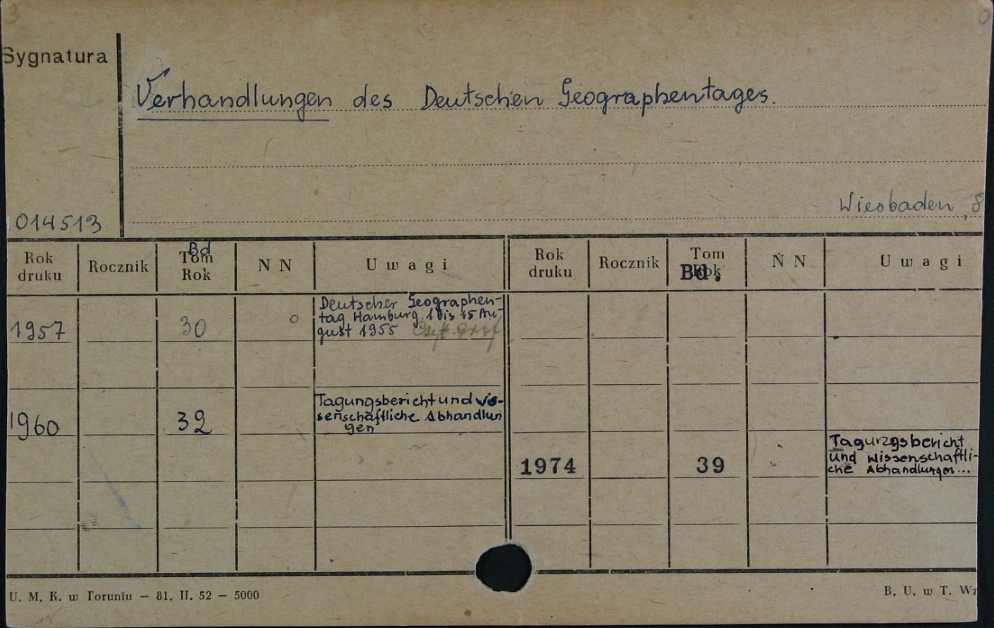 Sygnatura
Verhandlungen des Deutschen Geographentages.
Wiesbaden, 8
014513
Rok druku
Rocznik
Bd
Tom Rok
N N
Uwagi
Rok druku
Rocznik
Tom Rok
Bd.
N N
Uwagi
1957
30
Deutscher Geographen-
tag Hamburg. 1 bis 5 Au-
gust 1955
1960
32
Tagungsbericht und wis-
senschaftliche Abhandlun
gen
1974
39
Tagungsbericht
und wissenschaftli-
che Abhandlungen...
U. M. K. w Toruniu — 81. II. 52 — 5000
B. U. w T. Wz